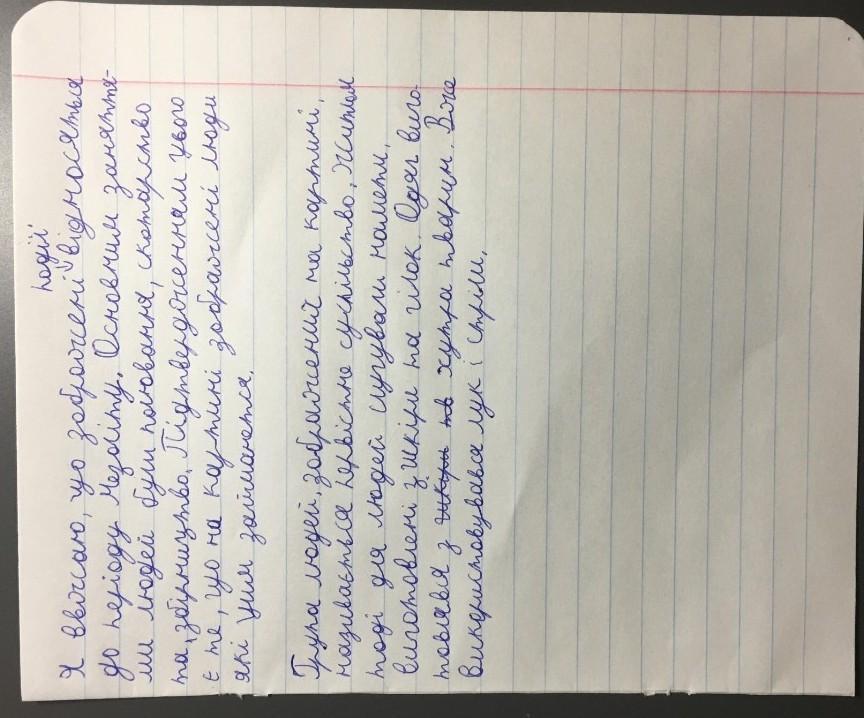 події
Я вважаю, що зображені відносяться
до періоду Мезоліту. Основним заняття-
ми людей були полювання, скотарство
та, збірництво. Підтвердженням цього
є те, що на картині зображені люди
які цим займаються.
Група людей, зображений на картині,
називається первістне суспільство. Житлом
тоді для людей слугували намети,
виготовлені з шкіри та гілок. Одяг виго-
товлявся з шкіри та хутра тварин. Вже
використовувався лук і стріли.